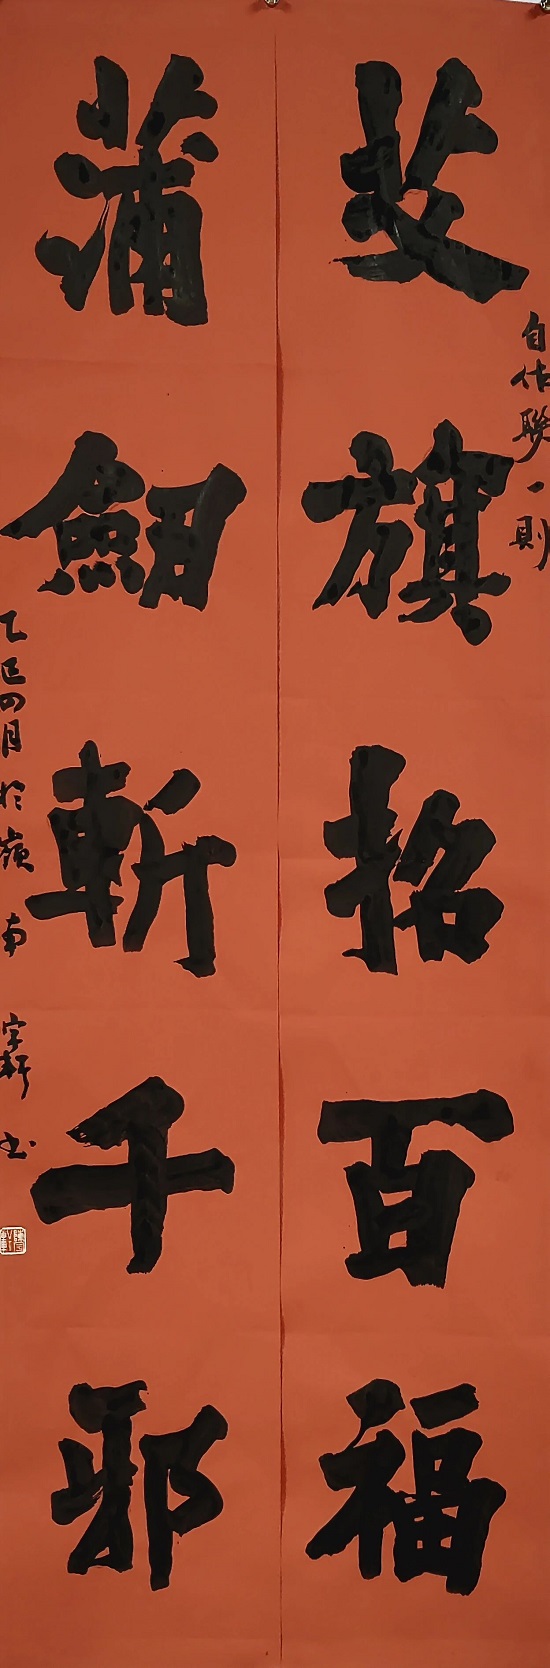 艾旗招百福
自作联一則
蒲劍斬千邪
乙巳四月於嶺南
宇軒书